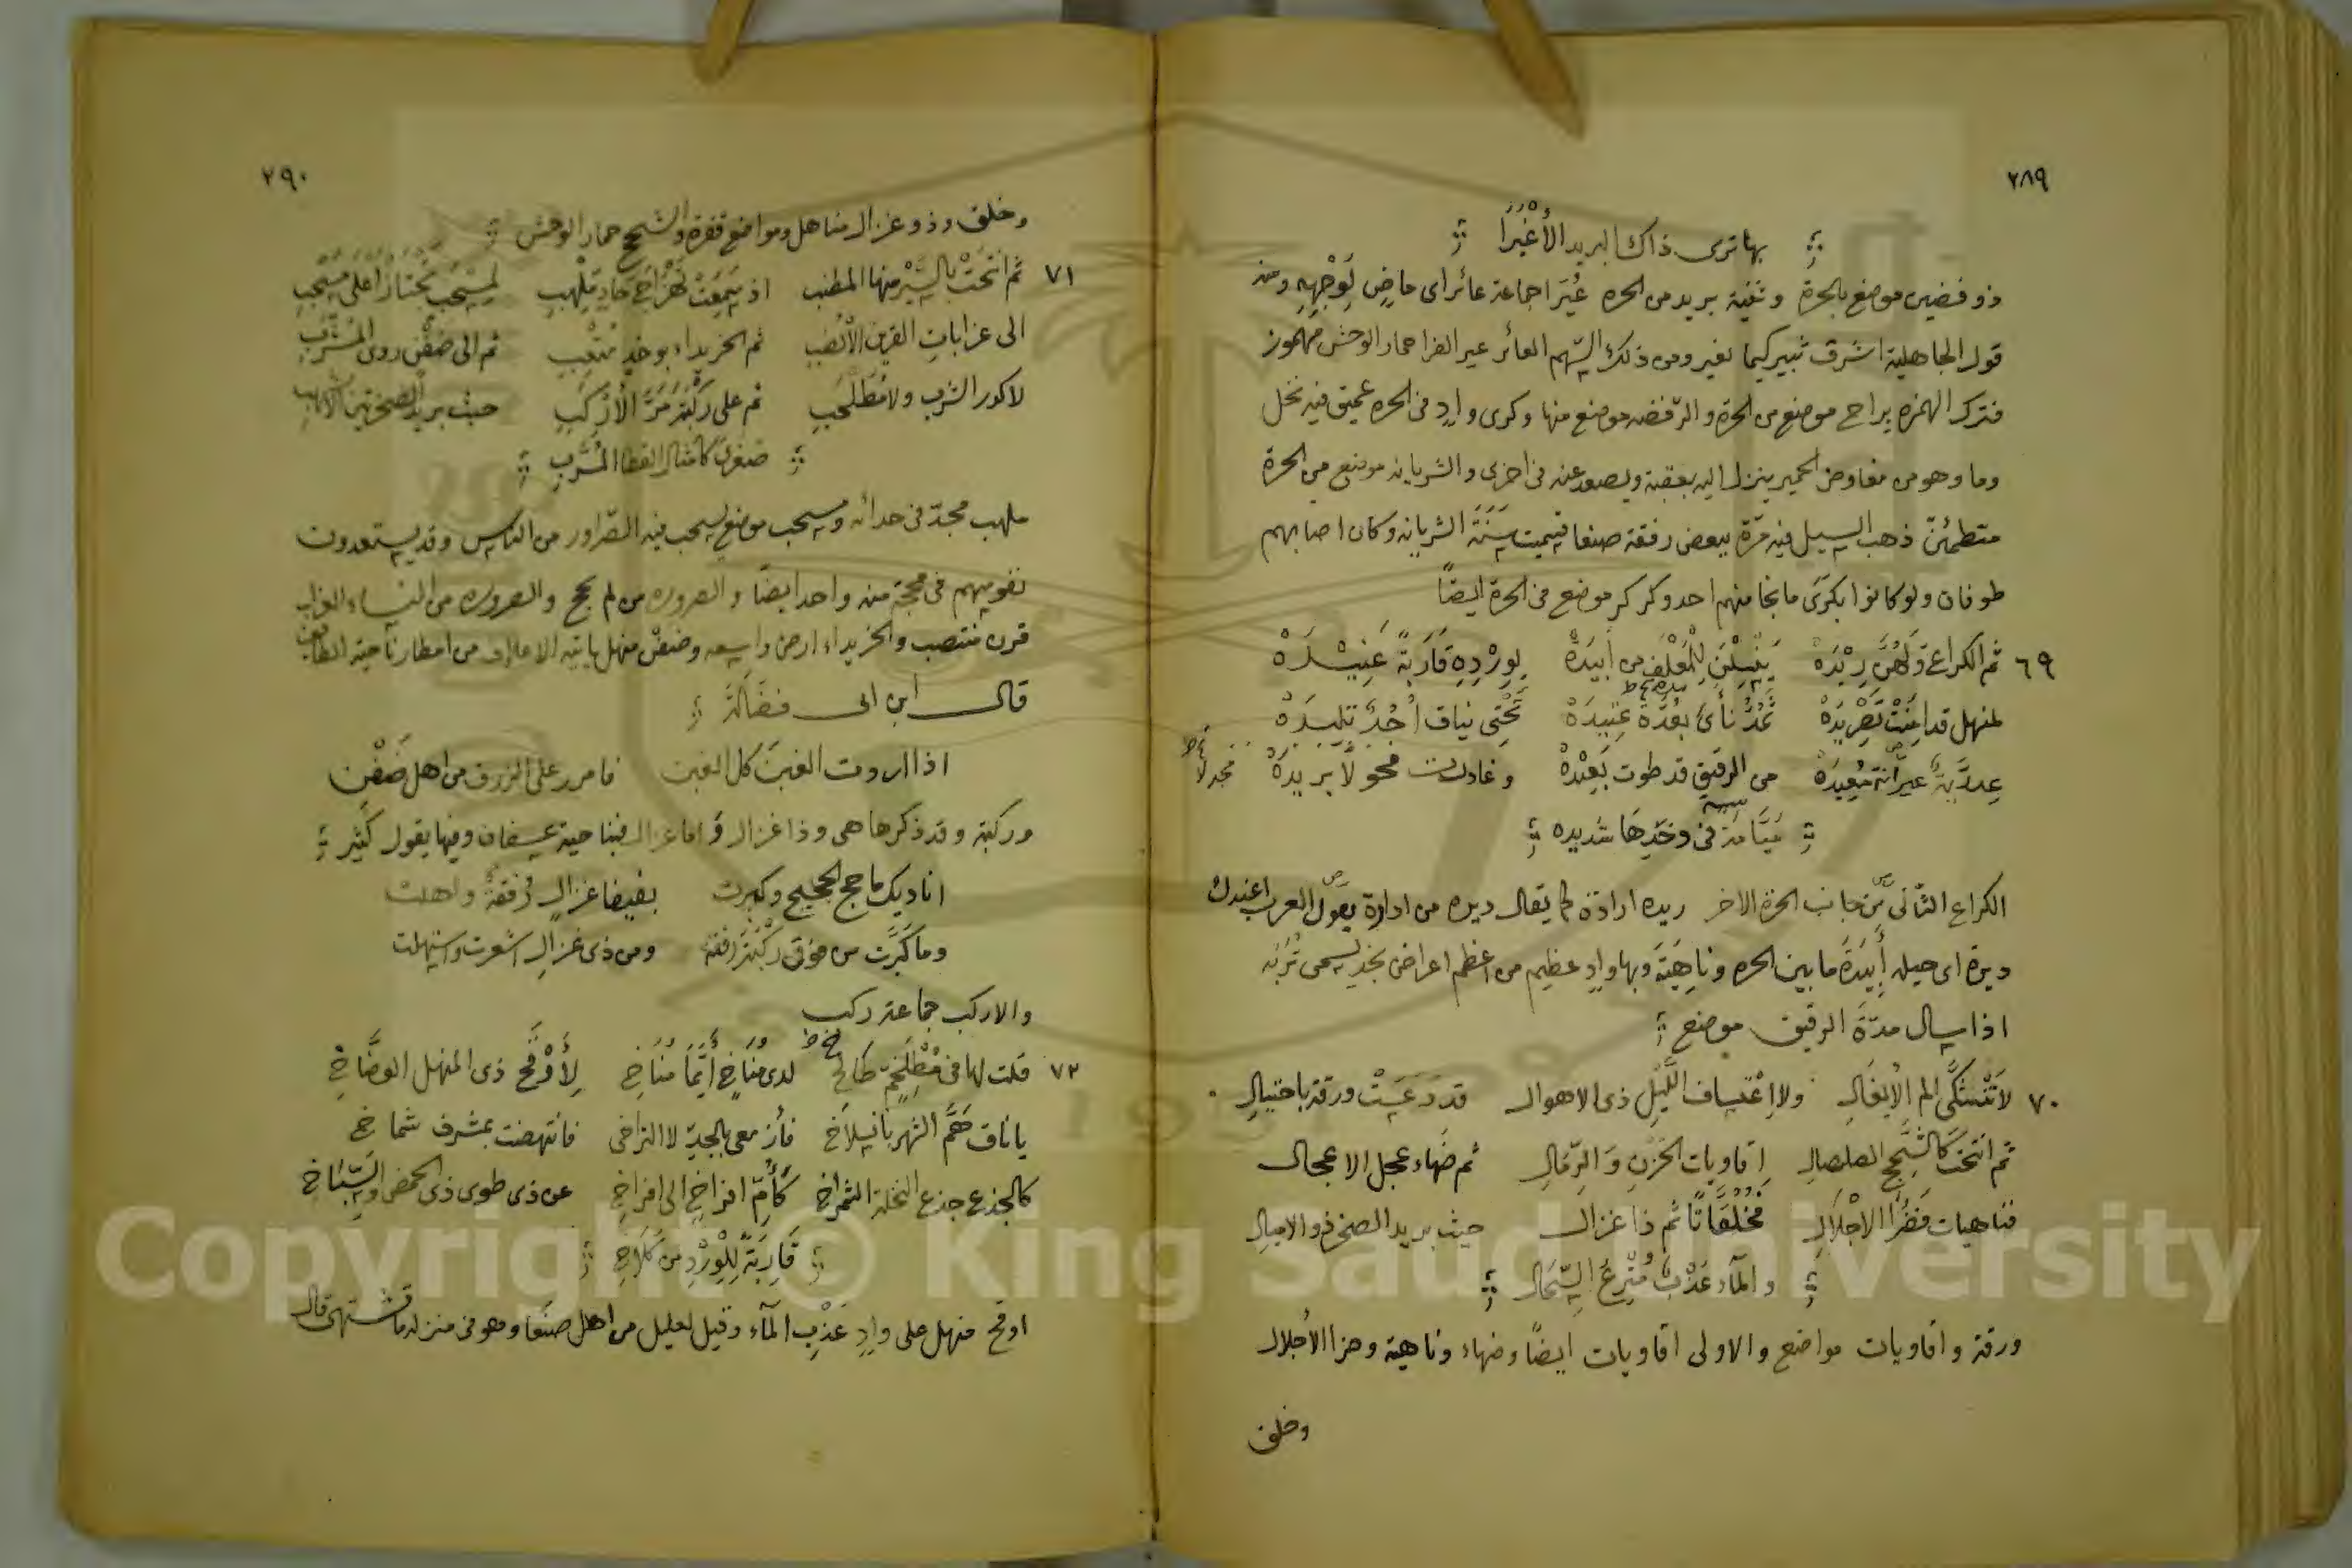 ٢٨٩
بها ترى ذاك البريد الأغبرا
ذو فضين موضع بالحرة وثنية بريد من الحره عُيَرا جماعة عائر اى ماضٍ لِوَجْهِهِ ومنه
قول الجاهلية اشرق ثبير كيما نغير ومن ذلك السهم العائر عير الفرا حمار الوحش مهموز
فترك الهمزه براح موضع من الحرة والرفضه موضع منها وكرى وادٍ فى الحره عميق فيه نخل
وما وهو من مفاوض الحمير ينزل اليه بعقبة ويصعد عنه فى اخرى والشريانه موضع من الحرة
متطمئنّ ذهب السيل فيه مرّة ببعض رفقة صنعا فسميت سَنَة الشريانه وكان اصابهم
طوفان ولو كانوا بكرَى ما نجا منهم احد وكركر موضع فى الحرة ايضًا
٦٩ ثم الكراع وَلَهُنَّ رِيْدَهْ من أبيدَهْ لِوِرْدِهِ قَارَبةً عَنِيْدَهْ
لمنهل قد نياف اُجُدٌ تليدَهْ
عيرانة مُعِيدَهْ من الرقيق قد طوت بَعِيْدَهْ وغادرت
فى وخدها شديده
الكراع الثانى من جانب الحرة الاخر ريده ارادة كما يقال ديره من ادارة يقول العرب اعندك
ديرة اى حيله أَبِيدَةَ ما بين الحره وناهِيَةَ وبها وادٍ عظيم من اعظم اعراض نجد يسمى تُرَبَه
اذا سال مدّةَ الرقيق موضع
٧٠ لا تَتَشَكَّى الم الإيغَالِ ولا إعْتِساف اللَّيْلِ ذى الاهوال قد وَعَسَتْ ورقة باختيالِ
ثم انتحت كالشَّحَّجِ الصلصالِ اقاويات الحَزْنِ وَالرِّمَالِ ثم ضَهَاء عجل الاعجال
فناهيات الاجْلَالِ ثم ذا غزال حيث بريد الصخر ذو الاميالِ
والمآء عَذْبٌ مُتْرَعُ السِّجَالِ
ورقة واقاويات مواضع والاولى اقاويات ايضًا وضهاء وناهية الأجلال
وخلف
٢٩٠
وخلف وذو غزال مناهل ومواضع قفرة والشحج حمار الوحش
٧١ ثم انتحَتْ بالسَّيْرِ منها المطنب اذ سَمِعَتْ حَادٍ مُلْهِبِ
الى عزابات القرين الأنْصَبِ ثم الخريداء بوخدٍ مُتْعِبِ ثم الى ضَفْنٍ روى المَشْرَبِ
لا كدر الشرب ولا مُطَحْلَبِ ثم على رَكْبَةَ مَرَّ الأَرْكَبِ حيث بريد الصخر
كامثال القطا المُسَرَّبِ
ملهب مجدّ فى حدائه ومسحب موضع يسحب فيه الصراور من الناس وقد يستعدون
نفوسهم فى حجة منه واحد ايضًا والصروره من لم يحج والصروره من النساء العزاب
قرن منتصب والخريداء ارض واسعه وضفن منهل من امطار ناحية الطائف
قال ابن ابى فضَالَةَ
اذا اروت الغينَ كل الغين فامرر على الزرق من اهل ضَفْنِ
وركبة وقد ذكرها هى وذا غزال واما غزال فبناحية عسفان وفيها يقول كُثَيّر
اناديك ما حج الحجيج وكبرت بفيفا غزالٍ رُفقةٌ واهلت
وما كَبَّرت من فوق رَكْبَةَ رفقة ومن ذى غزالٍ اشعرت واستهلت
والاركب جماعة ركب
٧٢ قلت لها فى مُطْلَخِمّ طاخ لدى مُنَاخٍ أيَّمَا مُنَاخِ لِأَوْقَحٍ ذى المنهل الوضَّاخِ
يا ناق هَمَّ الشهر بانسلاخ فأزمعى بالجدّ لا التراخى فانتهضت بمشرف شماخ
كالجذع جذع النخلة الشمراخ كأُمّ افراخٍ الى افراخِ عن ذى طوى ذى الحمض والسَّبَاخِ
قَارِبَةً لِلْوِرْدِ من كَلاخِ
اوقح منهل على وادٍ عَذْبِ المآء وقيل لعليل من اهل صنعا وهو فى منزله ما تشتهى قال
Copyright © King Saud University